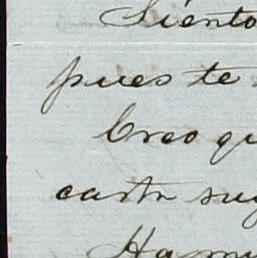 Siento
pues te
Creo qu
carta suy
Ha